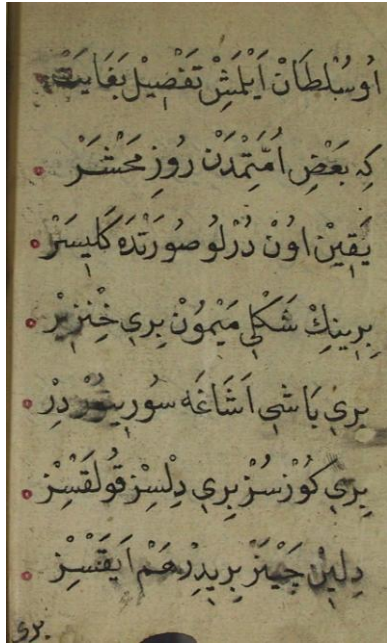 اُوسُلْطَانْ اَيْلَمِشْ تَفْصِيلْ بَغَايَتْ
كِه بَعْضِ اُمَّتِمْدَنْ رُوزِ مَحْشَرْ
يَقِينْ اوُنْ دُرْلُو صُورَتْدَه كَلِيسَرْ
بِرِينِكْ شَكْلِي مَيْمُونْ بِرِي خِنْزِيْر
بِرِي بَاشِي اَشَاغَه سُورِينُورْ دِرْ
بِرِي كُوزْسُزْ بِرِي دِلْسِزْ قُولَقْسِزْ
دِلِينْ چَيْنَرْ بِرِيدِرْ هَمْ اَيَقْسِزْ
بري